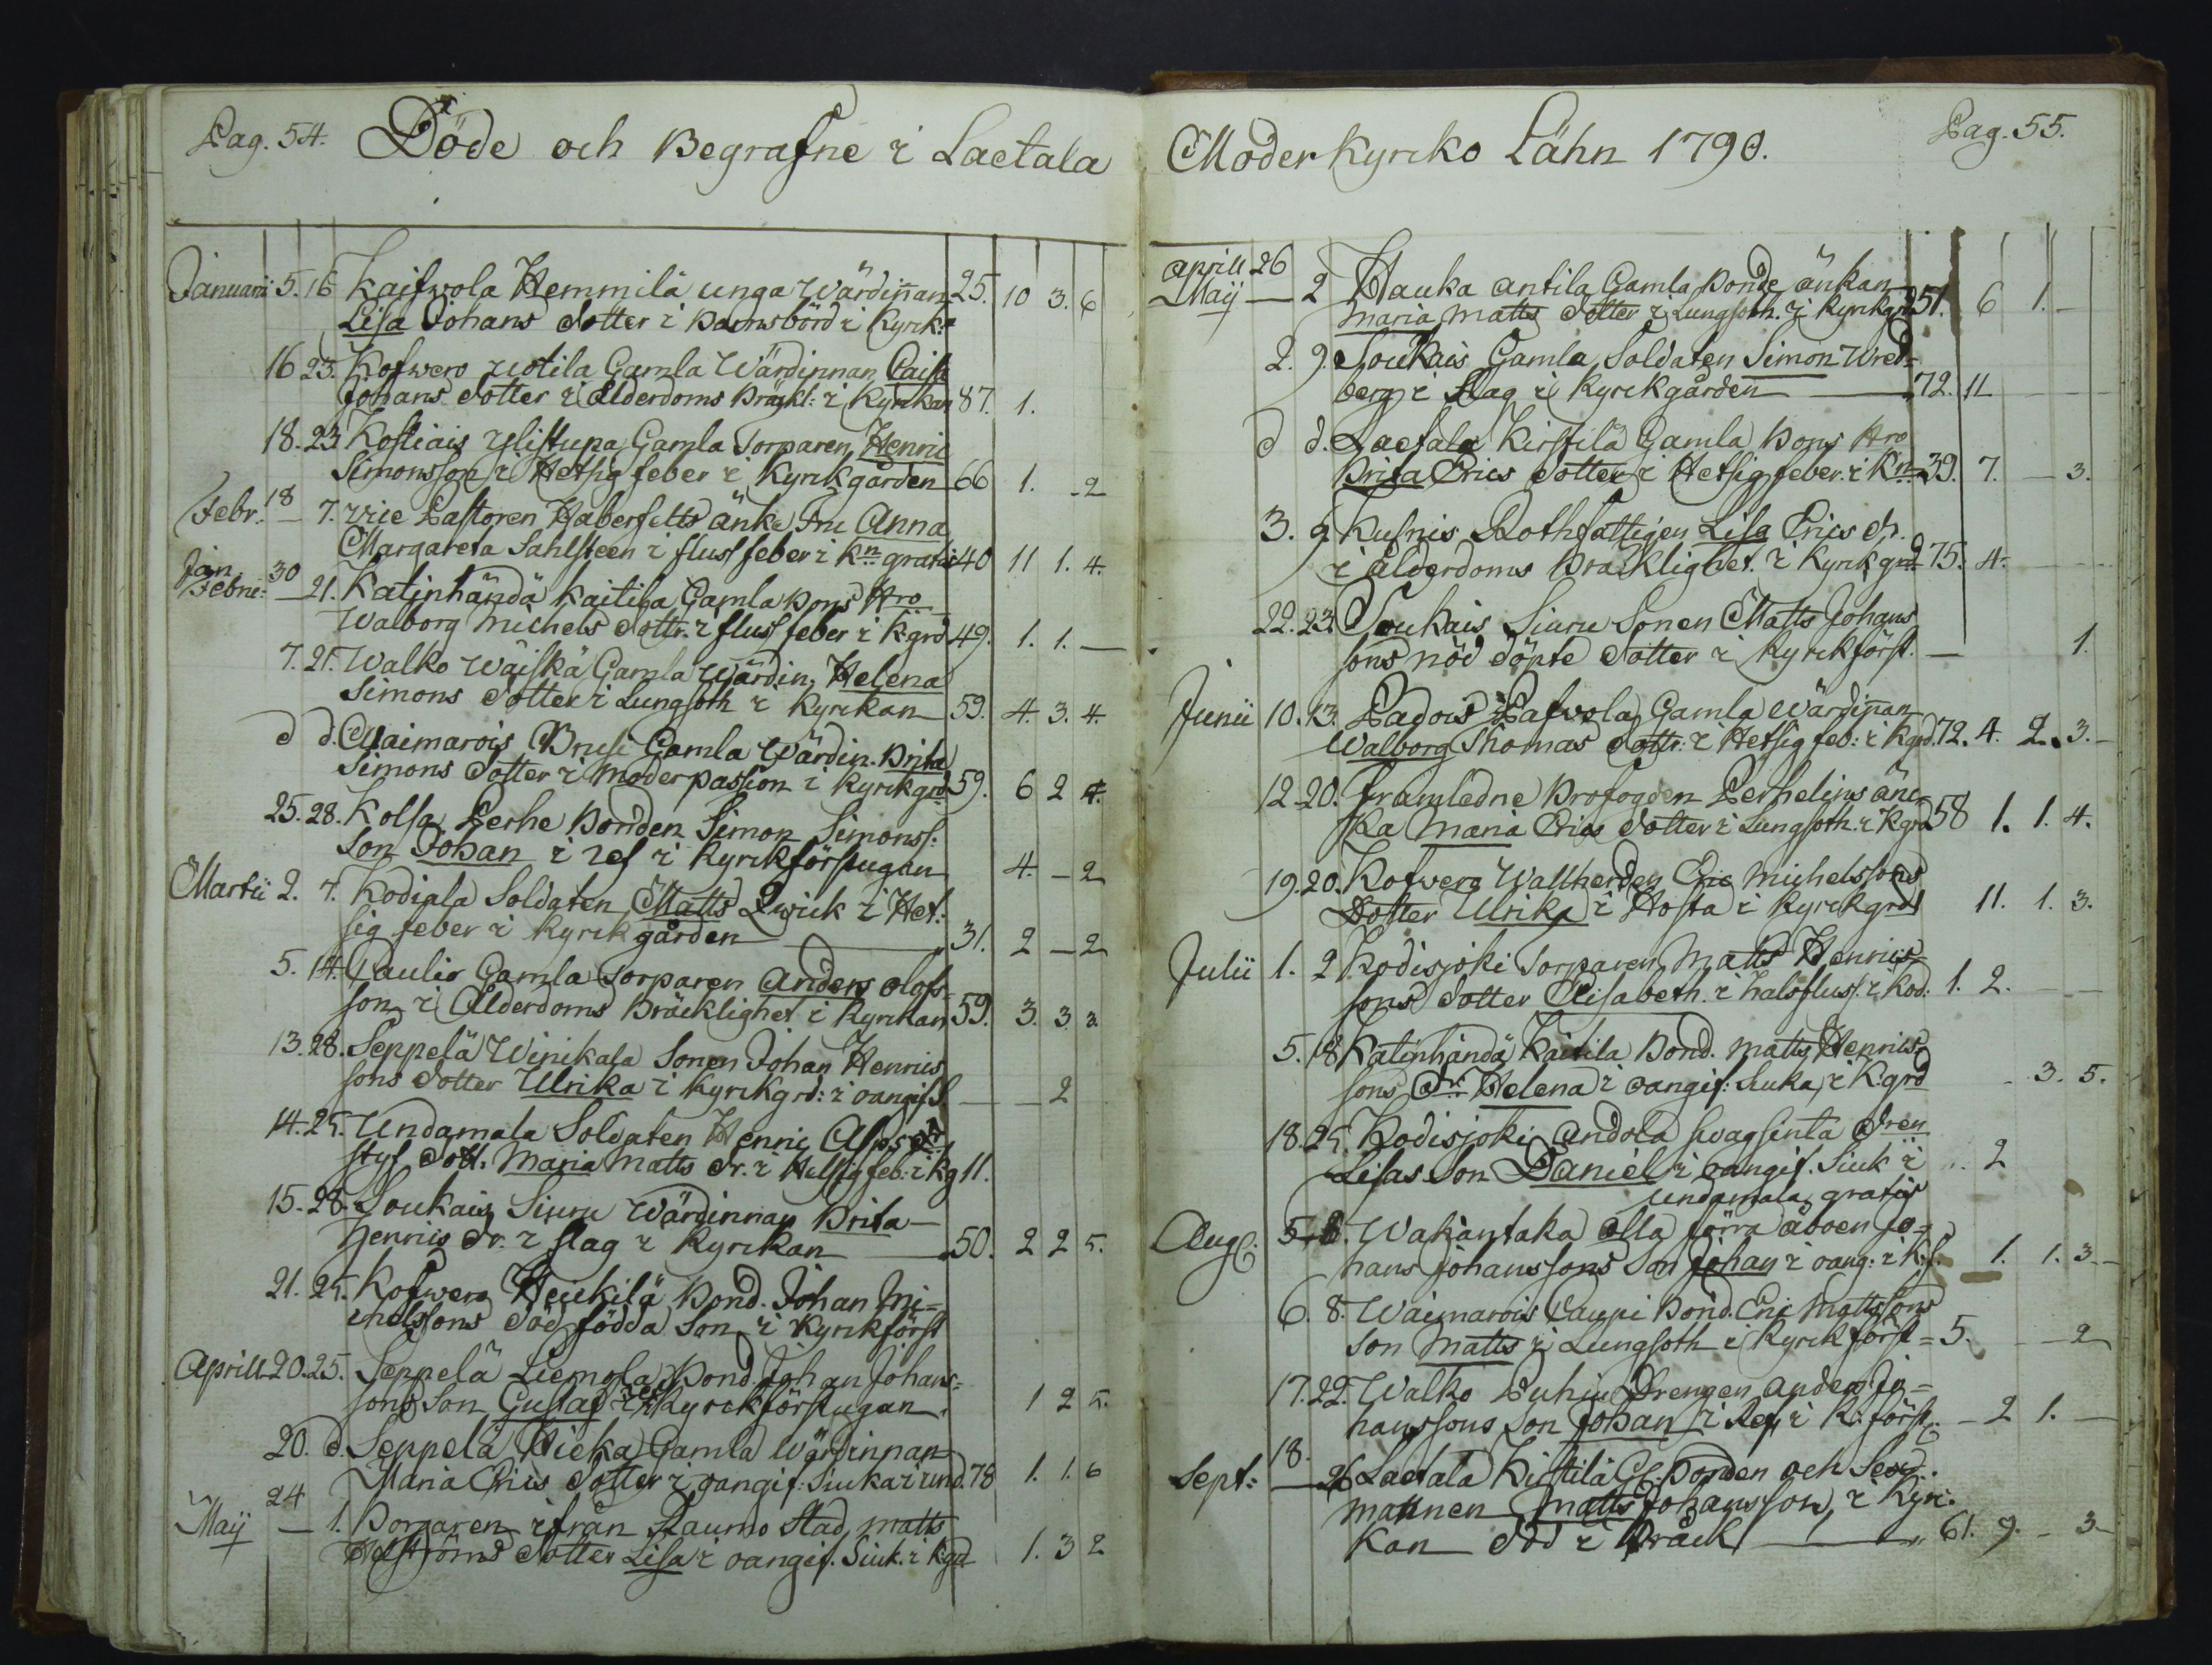 Pag. 54. Döde och Begrafne i Laetala
Januarii 5. 16 Kaifwola Hemmilä unga Wärdinnan 25. 10 3. 6
Lisa Johans dotter i Barnsbörd i Kyrk:
16 23. Kofwero Uotila Gamla Wärdinnan Caisa
Johans dotter i Ålderdoms Bräckl: i Kyrckan 87. 1.
18. 23 Kostiais Ylistupa Gamla Torparen Henric
Simonsson i Hetsig feber i Kyrckgården 66 1. - 2
Febr. 18 — 7. vice Pastoren Haberfetts änka Fru Anna
Margareta Sahlsteen i fluss feber i Kn gratis 40 11 1. 4.
Jan. 30
Febru: — 21. Katinhändä Kaitila Gamla Bons Hro
Walborg Michels dottr. i fluss feber i K:grd 49. 1. 1. —
7. 21. Walko Wäiskä Gamla Wärdin, Helena
Simons dotter i Lungsoth i Kyrckan 59. 4. 3. 4.
d d. Waimarois Brusi Gamla Wärdin. Brita
Simons dotter i Moderpassion i Kyrckgrd 59. 6 2 4.
25. 28. Kolsa Perhe Bonden Simon Simonss:
Son Johan i ref i Kyrckförstugan 4. - 2
Martii 2. 7. Kodiala Soldaten Matts Qwick i Het:
sig feber i Kyrckgården 31. 2 - 2
5. 14. Caulio Gamla Torparen Anders Olofs=
son i Ålderdoms Bräcklighet i Kyrckan 59. 3. 3 3.
13. 28. Seppelä Winikala Sonen Johan Henrics
sons dotter Ulrika i Kyrckgrd: i oangif S. — — 2
14. 25. Undamala Soldaten Henric Alps
styf dott. Maria Matts dr. i Hetsig feb: i Kg 11.
15. 28. Soukais Siuru Wärdinnan Brita
Henrics dr. i slag i Kyrckan 50. 2 2 5.
21. 25. Kofwero Heickilä Bond. Johan Mi=
chelssons död födda Son i Kyrckförst
Aprill 20. 25. Seppelä Liemola Bond Johan Johans=
sons Son Gustaf i ref i Kyrckförstugan. 1 2 5.
20. d. Seppelä Hieka Gamla Wärdinnan
Maria Erics dotter i oangif: Siuka i und. 78 1. 1. 6
24
Maij — 1. Borgaren ifrån Raumo Stad Matts
dotter Lisa i oangif. Siuk. i K:grd 1. 3 2
Moderkyrcko Lähn 1790. Pag. 55.
Aprill 26
Maij — 2 Hauka Antila Gamla Bonde änkan
Maria Matts dotter i Lungsoth. i Kyrckgrd 51. 6 1. —
2. 9. Soukais Gamla Soldaten Simon Wred=
berg i Slag i Kyrckgården 72. 11 — —
d d. Laetala Kirstilä Gamla Bons Hro
Brita Erics dotter i Hetsig feber. i Kn 39. 7. — 3.
3. 9 Kusnis Rothfattigen Lisa Erics dr.
i ålderdoms Bräcklighet. i Kyrckgrd 75. 4. — —
22. 23. Soukais Siuru Sonen Matts Johans
sons nöd döpte dotter i Kyrckförst. — 1.
Junii 10. 13. Padois Pafwola Gamla Wärdinnan
Walborg Thomas dottr: i Hetsig feb: i K:grd. 72. 4. 2. 3.
12. 20. Framledne Profogden Perhelins än=
ka Maria Erics dotter i Lungsoth. i K:grd 58 1. 1. 4.
19. 20. Kofwero Wallherden Eric Michelssons
Dotter Ulrika i Hosta i Kyrckgrd 11. 1. 3.
Julii 1. 2 Kodisjoki Torparen Matts Henrics=
sons dotter Elisabeth. i halsfluss. i Kod: 1. 2. — —
5. 18 Katinhändä Kaitila Bond. Matts Henrics=
sons Dr. Helena i oangif: Siuka i K:grd - 3. 5.
18. 25. Kodisjoki Andola swagsinta dren
Lisas Son Daniel i oangif. Siuk i 2
Undamala gratis
Aug. 5. 8. Wakantaka Olla förra åboen Jo=
hans Johanssons Son Johan i oang: i K:f. 1. 1. 3.
6. 8. Waimarois Caupi Bond. Eric Mattssons
Son Matts i Lungsoth i Kyrckförst = 5. - - 2
17. 22. Walko Puhiu Drengen Anders Jo=
hanssons Son Johan i Ref i K: först. - 2 1. —
18.
Sept: — 26 Laetala Kirstilä Gl. Bonden och Sexd.
mannen Matts Johansson, i Kyrc:
kan död i Bråck 61. 9. - 3